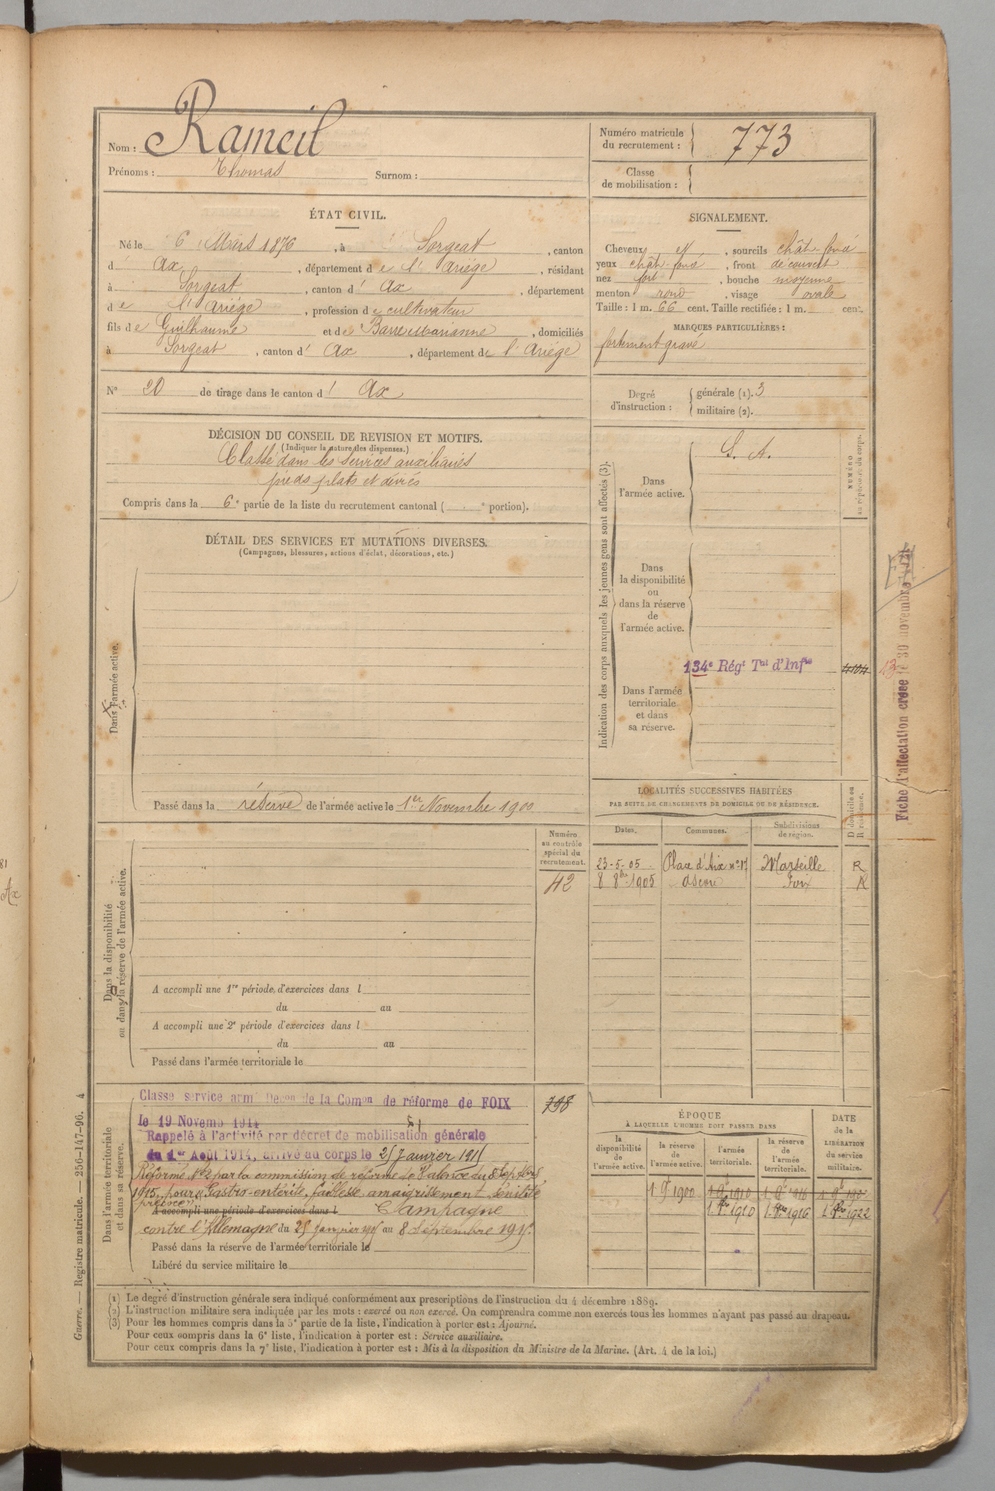 Nom : Rameil
Prénoms : Thomas Surnom :
Numéro matricule du recrutement : 773
Classe de mobilisation :
ÉTAT CIVIL.
Né le 6 Mars 1876, à Sorgeat, canton
d Ax, département de l'Ariège, résidant
à Sorgeat, canton d' Ax, département
de l'Ariège, profession de cultivateur
fils de Guilhaume et de Barre Marianne, domiciliés
à Sorgeat, canton d' Ax, département de l'Ariège
N° 20 de tirage dans le canton d' Ax
DÉCISION DU CONSEIL DE REVISION ET MOTIFS.
(Indiquer la nature des dispenses.)
Classé dans les services auxiliaires
pieds plats et déviés
Compris dans la 6e partie de la liste du recrutement cantonal ( e portion).
DÉTAIL DES SERVICES ET MUTATIONS DIVERSES.
(Campagnes, blessures, actions d'éclat, décorations, etc.)
Dans l'armée active.
Passé dans la réserve de l'armée active le 1er Novembre 1900
SIGNALEMENT.
Cheveux , sourcils chât foncé
yeux chât foncé , front découvert
nez fort , bouche moyenne
menton rond , visage ovale
Taille : 1 m. 66 cent. Taille rectifiée : 1 m. cent.
MARQUES PARTICULIÈRES :
fortement gravé
Degré d'instruction : générale (1). 3
militaire (2).
Indication des corps auxquels les jeunes gens sont affectés (3).
NUMÉRO au répertoire du corps.
Dans l'armée active. S. A.
Dans la disponibilité ou dans la réserve de l'armée active.
134e Régt Tal d'Infie
Dans l'armée territoriale et dans sa réserve.
Fiche d'affectation créée le 30 novembre
LOCALITÉS SUCCESSIVES HABITÉES
PAR SUITE DE CHANGEMENTS DE DOMICILE OU DE RÉSIDENCE.
Dates. Communes. Subdivisions de région. D domicile ou R résidence.
23-5-05 Place d'Aix n° 17 Marseille R
8 8bre 1905 Ascou Foix R
Dans la disponibilité ou dans la réserve de l'armée active.
Numéro au contrôle spécial du recrutement.
42
A accompli une 1re période d'exercices dans l
du au
A accompli une 2e période d'exercices dans l
du au
Passé dans l'armée territoriale le
Dans l'armée territoriale et dans sa réserve.
798
Classé service armé Décon de la Comon de réforme de FOIX
le 19 Novemb 1914
Rappelé à l'activité par décret de mobilisation générale
du 1er Août 1914. Arrivé au corps le 25 Janvier 1915
Réformé N°2 par la commission de réforme de Valence du 8 Septbre
1915 pour "Gastro-entérite, faiblesse amaigrissement sénilité
précoce"
A accompli une période d'exercices dans l Campagne
contre l'Allemagne du 25 janvier 1915 au 8 Septembre 1915
Passé dans la réserve de l'armée territoriale le
Libéré du service militaire le
ÉPOQUE
À LAQUELLE L'HOMME DOIT PASSER DANS
la disponibilité de l'armée active. la réserve de l'armée active. l'armée territoriale. la réserve de l'armée territoriale.
DATE de la LIBÉRATION du service militaire.
1. 9e 1900 1 9e 1910 1 9e 1916
1. 9bre 1910 1. 9bre 1916 1. 9bre 1922
(1) Le degré d'instruction générale sera indiqué conformément aux prescriptions de l'instruction du 4 décembre 1889.
(2) L'instruction militaire sera indiquée par les mots : exercé ou non exercé. On comprendra comme non exercés tous les hommes n'ayant pas passé au drapeau.
(3) Pour les hommes compris dans la 5e partie de la liste, l'indication à porter est : Ajourné.
Pour ceux compris dans la 6e liste, l'indication à porter est : Service auxiliaire.
Pour ceux compris dans la 7e liste, l'indication à porter est : Mis à la disposition du Ministre de la Marine. (Art. 4 de la loi.)
Guerre. — Registre matricule. — 256-147-96. 4